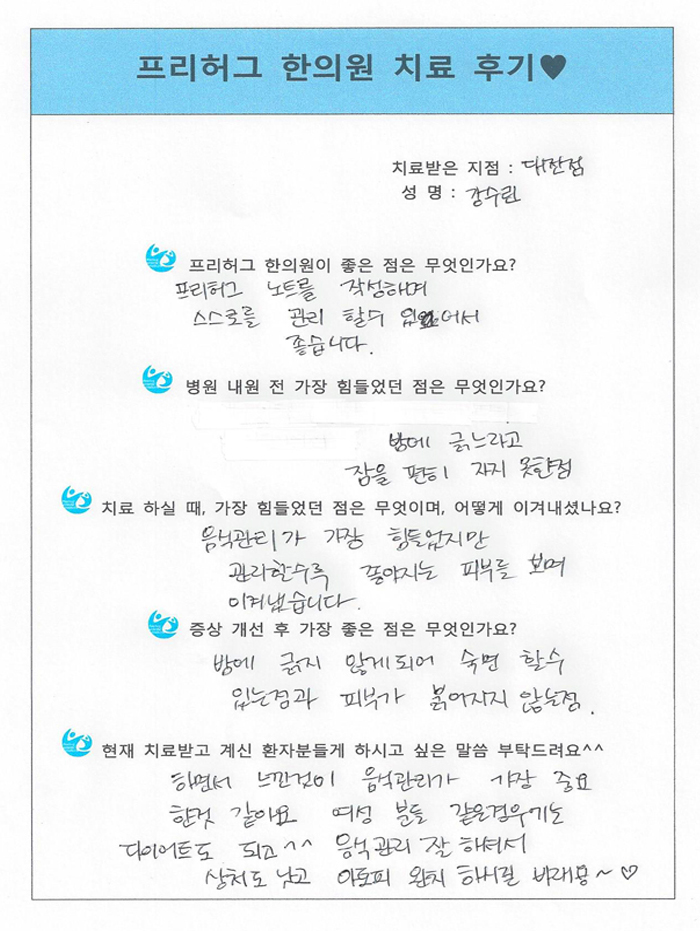 프리허그 한의원 치료 후기♥
치료받은 지점 : 대전점
성 명 : 강수린
프리허그 한의원이 좋은 점은 무엇인가요?
프리허그 노트를 작성하며
스스로를 관리 할수 있어서
좋습니다.
병원 내원 전 가장 힘들었던 점은 무엇인가요?
밤에 긁느라고
잠을 편히 자지 못한점
치료 하실 때, 가장 힘들었던 점은 무엇이며, 어떻게 이겨내셨나요?
음식관리가 가장 힘들었지만
관리할수록 좋아지는 피부를 보며
이겨냈습니다.
증상 개선 후 가장 좋은 점은 무엇인가요?
밤에 긁지 않게되어 숙면 할수
있는점과 피부가 붉어지지 않는점.
현재 치료받고 계신 환자분들게 하시고 싶은 말씀 부탁드려요^^
하면서 느낀것이 음식관리가 가장 중요
한것 같아요 여성 분들 같은경우에는
다이어트도 되고^^ 음식관리 잘 하셔서
상처도 낫고 아토피 완치 하시길 바래용~♡